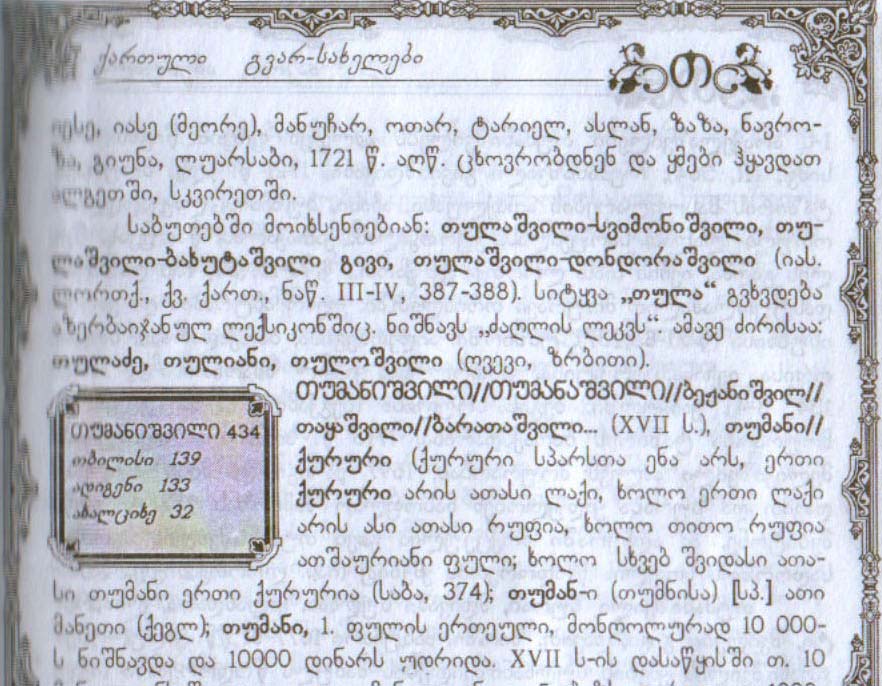 ქართული გვარ-სახელები
თ
იასე (მეორე), მანუჩარ, ოთარ, ტარიელ, ასლან, ზაზა, ნავრო-
გიუნა, ლუარსაბი, 1721 წ. აღწ. ცხოვრობდნენ და ყმები ჰყავდათ
ალგეთში, სკვირეთში.
საბუთებში მოიხსენიებიან: თულაშვილი-სვიმონიშვილი, თუ-
ლაშვილი-ბახუტაშვილი გივი, თულაშვილი-დონდორაშვილი (იას.
ლორთქ., ქვ. ქართ., ნაწ. III-IV, 387-388). სიტყვა „თულა“ გვხვდება
აზერბაიჯანულ ლექსიკონშიც. ნიშნავს „ძაღლის ლეკვს“. ამავე ძირისაა:
თულაძე, თულიანი, თულოშვილი (ღვევი, ზრბითი).
თუმანიშვილი//თუმანაშვილი//ბეჟანიშვილ//
თაყაშვილი//ბარათაშვილი... (XVII ს.), თუმანი//
ქურური (ქურური სპარსთა ენა არს, ერთი
ქურური არის ათასი ლაქი, ხოლო ერთი ლაქი
არის ასი ათასი რუფია, ხოლო თითო რუფია
ათშაურიანი ფული; ხოლო სხვებ შვიდასი ათა-
სი თუმანი ერთი ქურურია (საბა, 374); თუმან-ი (თუმნისა) [სპ.] ათი
მანეთი (ქეგლ); თუმანი, 1. ფულის ერთეული, მონღოლურად 10 000-
ს ნიშნავდა და 10000 დინარს უდრიდა. XVII ს-ის დასაწყისში თ. 10
თუმანიშვილი 434
თბილისი 139
ადიგენი 133
ახალციხე 32